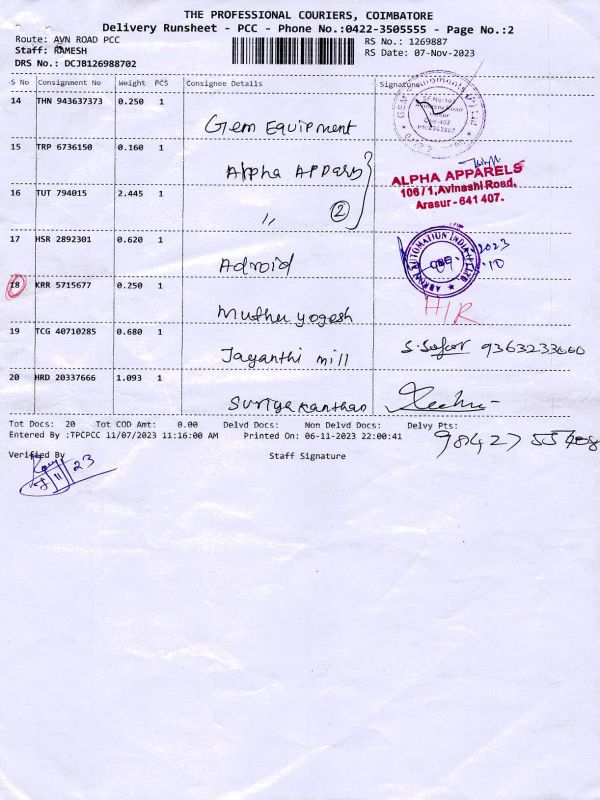 THE PROFESSIONAL COURIERS, COIMBATORE
Delivery Runsheet - PCC - Phone No.:0422-3505555 - Page No.:2
Route: AVN ROAD PCC
RS No.: 1269887
Staff: RAMESH
RS Date: 07-Nov-2023
DRS No.: DCJB126988702
S No Consignment No Weight PCS Consignee Details Signature
14 THN 943637373 0.250 1
Gem Equipment
15 TRP 6736150 0.160 1
Alpha
16 TUT 794015 2.445 1
" 2
ALPHA APPARELS
106/1, Avinashi Road,
Arasur - 641 407.
17 HSR 2892301 0.620 1
Adroid
AUTOMATION INDIA
18 KRR 5715677 0.250 1
Muthu yogesh H/R
19 TCG 40710285 0.680 1
Jayanthi mill 9363233660
20 HRD 20337666 1.093 1
Suriyakanthao
Tot Docs: 20 Tot COD Amt: 0.00 Delvd Docs: Non Delvd Docs: Delvy Pts:
Entered By :TPCPCC 11/07/2023 11:16:00 AM Printed On: 06-11-2023 22:00:41
Verified By Staff Signature